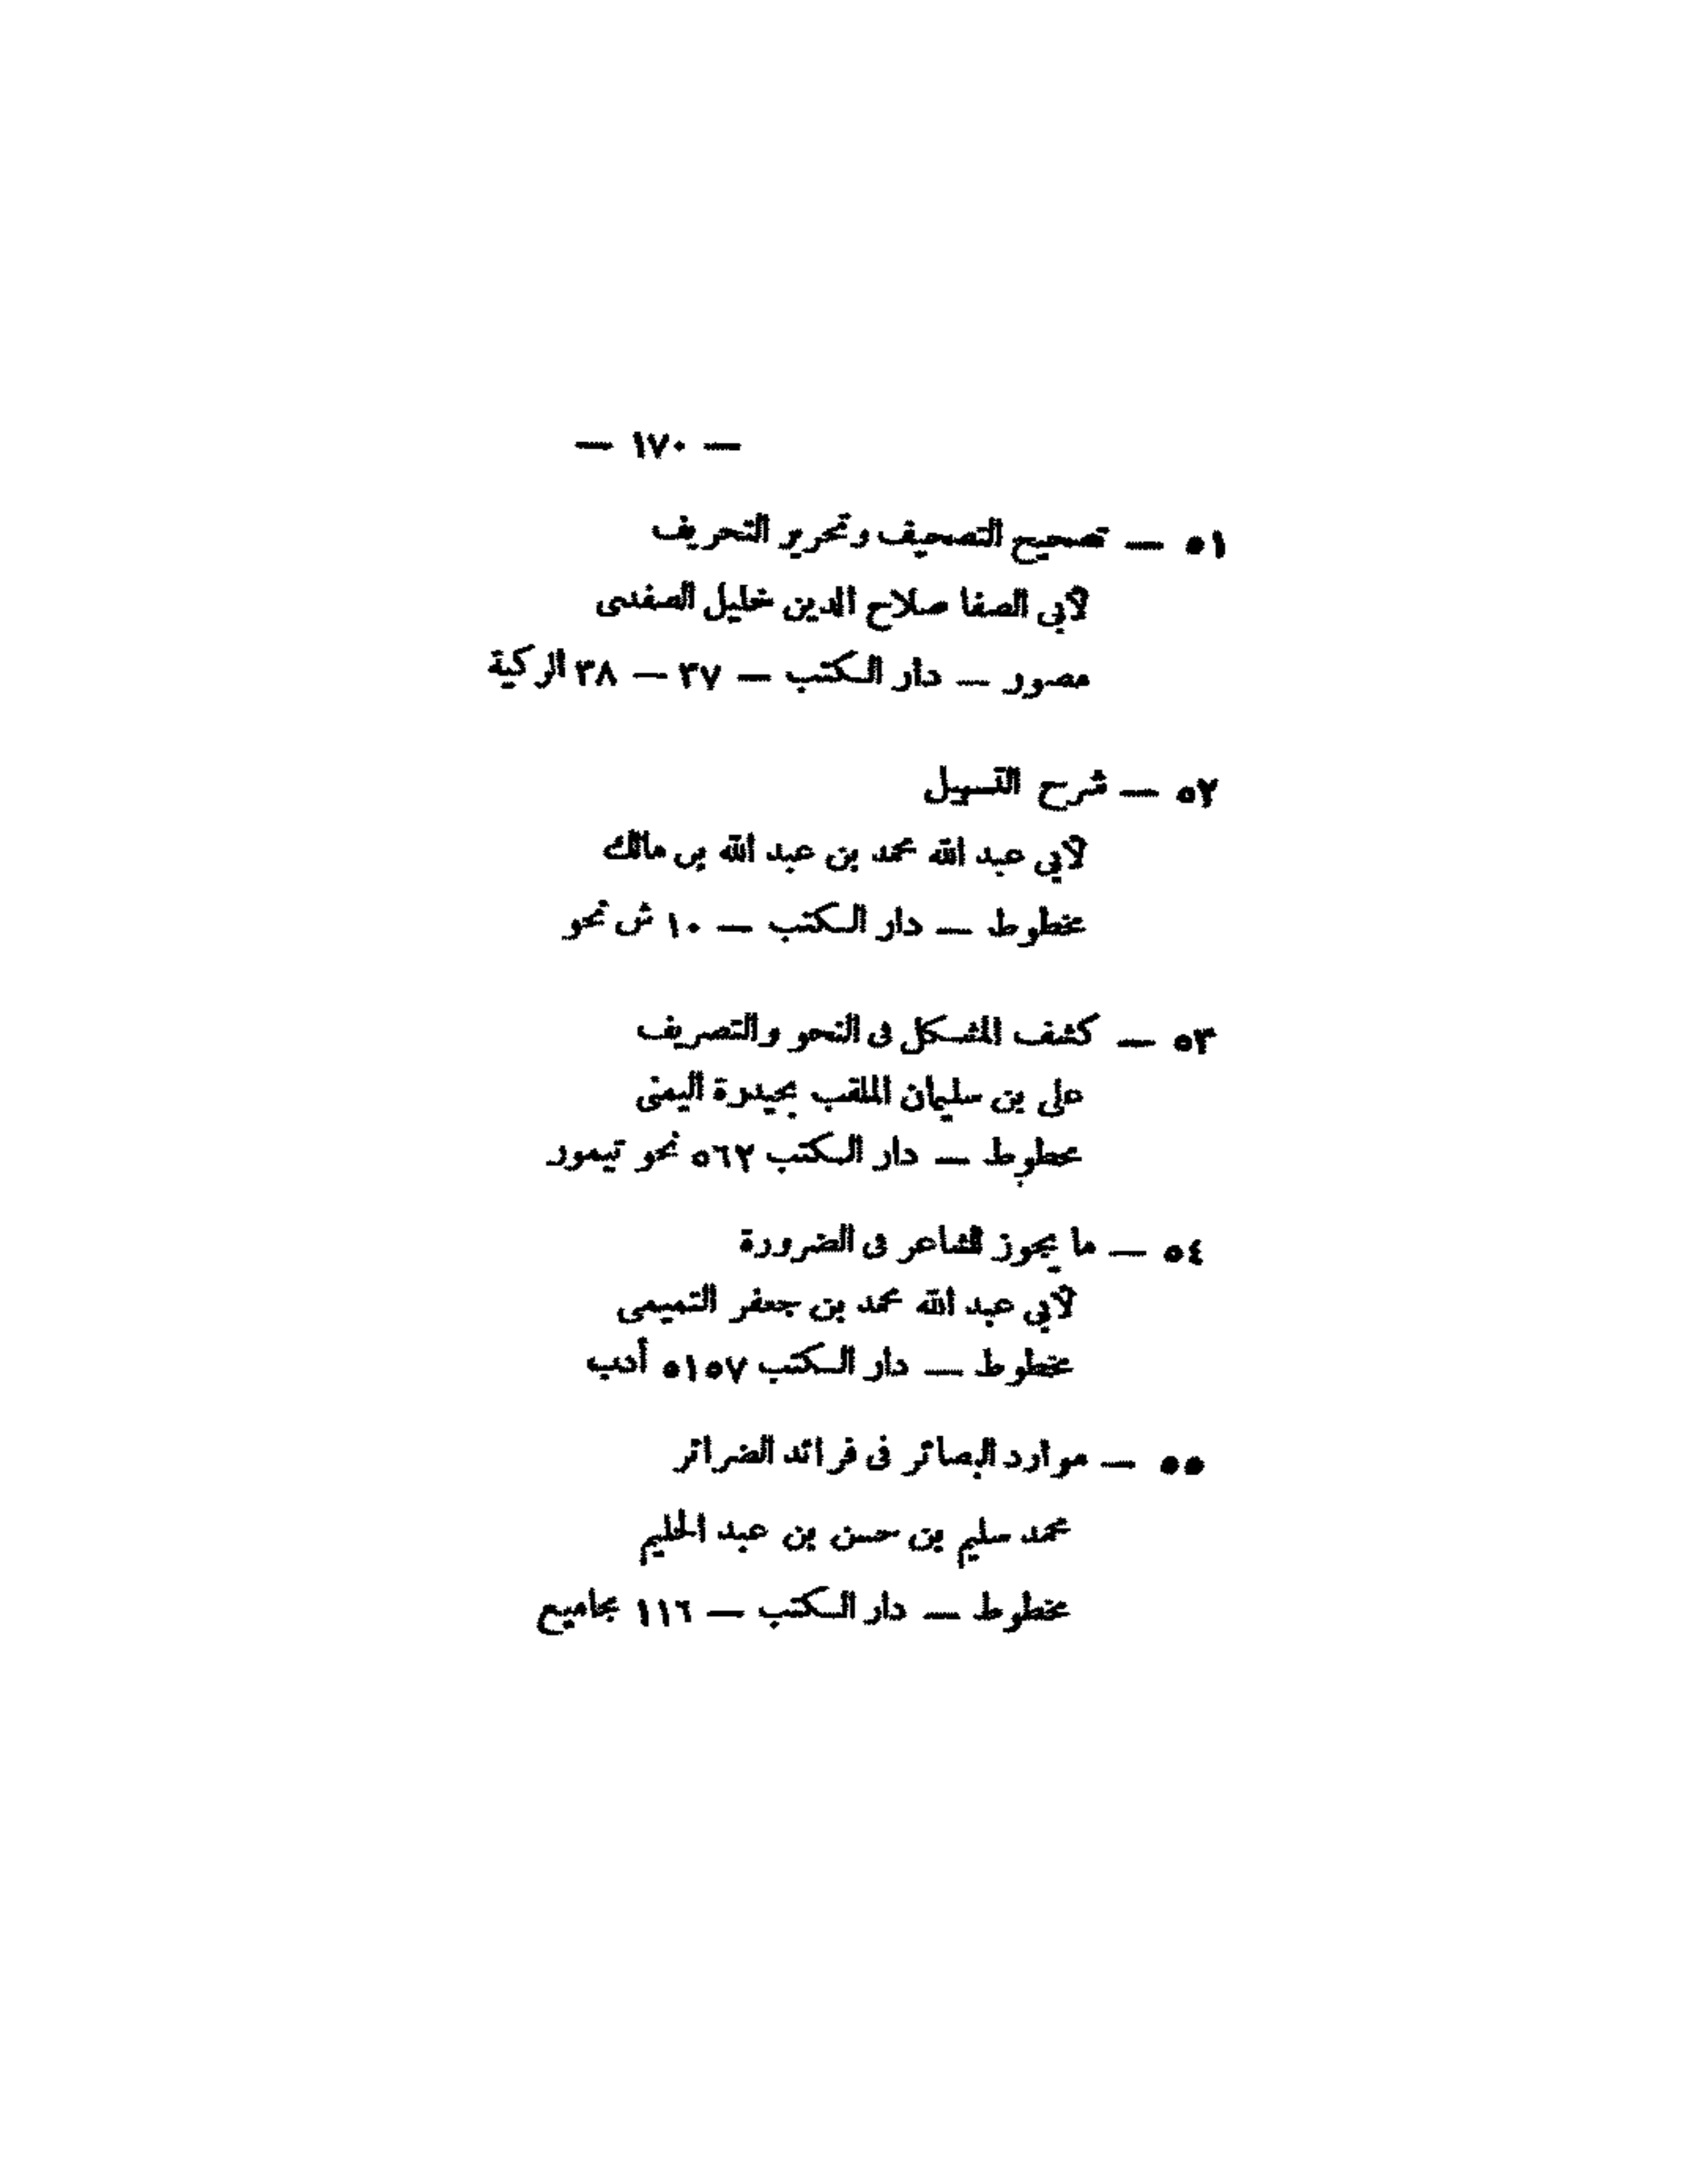 — ١٧٠ —
٥١ — تصحيح التصحيف وتحرير التحريف
لأبى الصفا صلاح الدين خليل الصفدى
مصور — دار الكتب — ٣٧ — ٣٨ الزكية
٥٢ — شرح التسهيل
لأبى عبد الله محمد بن عبد الله بن مالك
مخطوط — دار الكتب — ١٠ ش نحو
٥٣ — كشف المشكل فى النحو والتصريف
على بن سليمان الملقب بحيدرة اليمنى
مخطوط — دار الكتب ٥٦٢ نحو تيمور
٥٤ — ما يجوز للشاعر فى الضرورة
لأبى عبد الله محمد بن جعفر التميمى
مخطوط — دار الكتب ٥١٥٧ أدب
٥٥ — موارد البصائر فى فرائد الضرائر
محمد سليم بن حسن بن عبد الحليم
مخطوط — دار الكتب — ١١٦ مجاميع